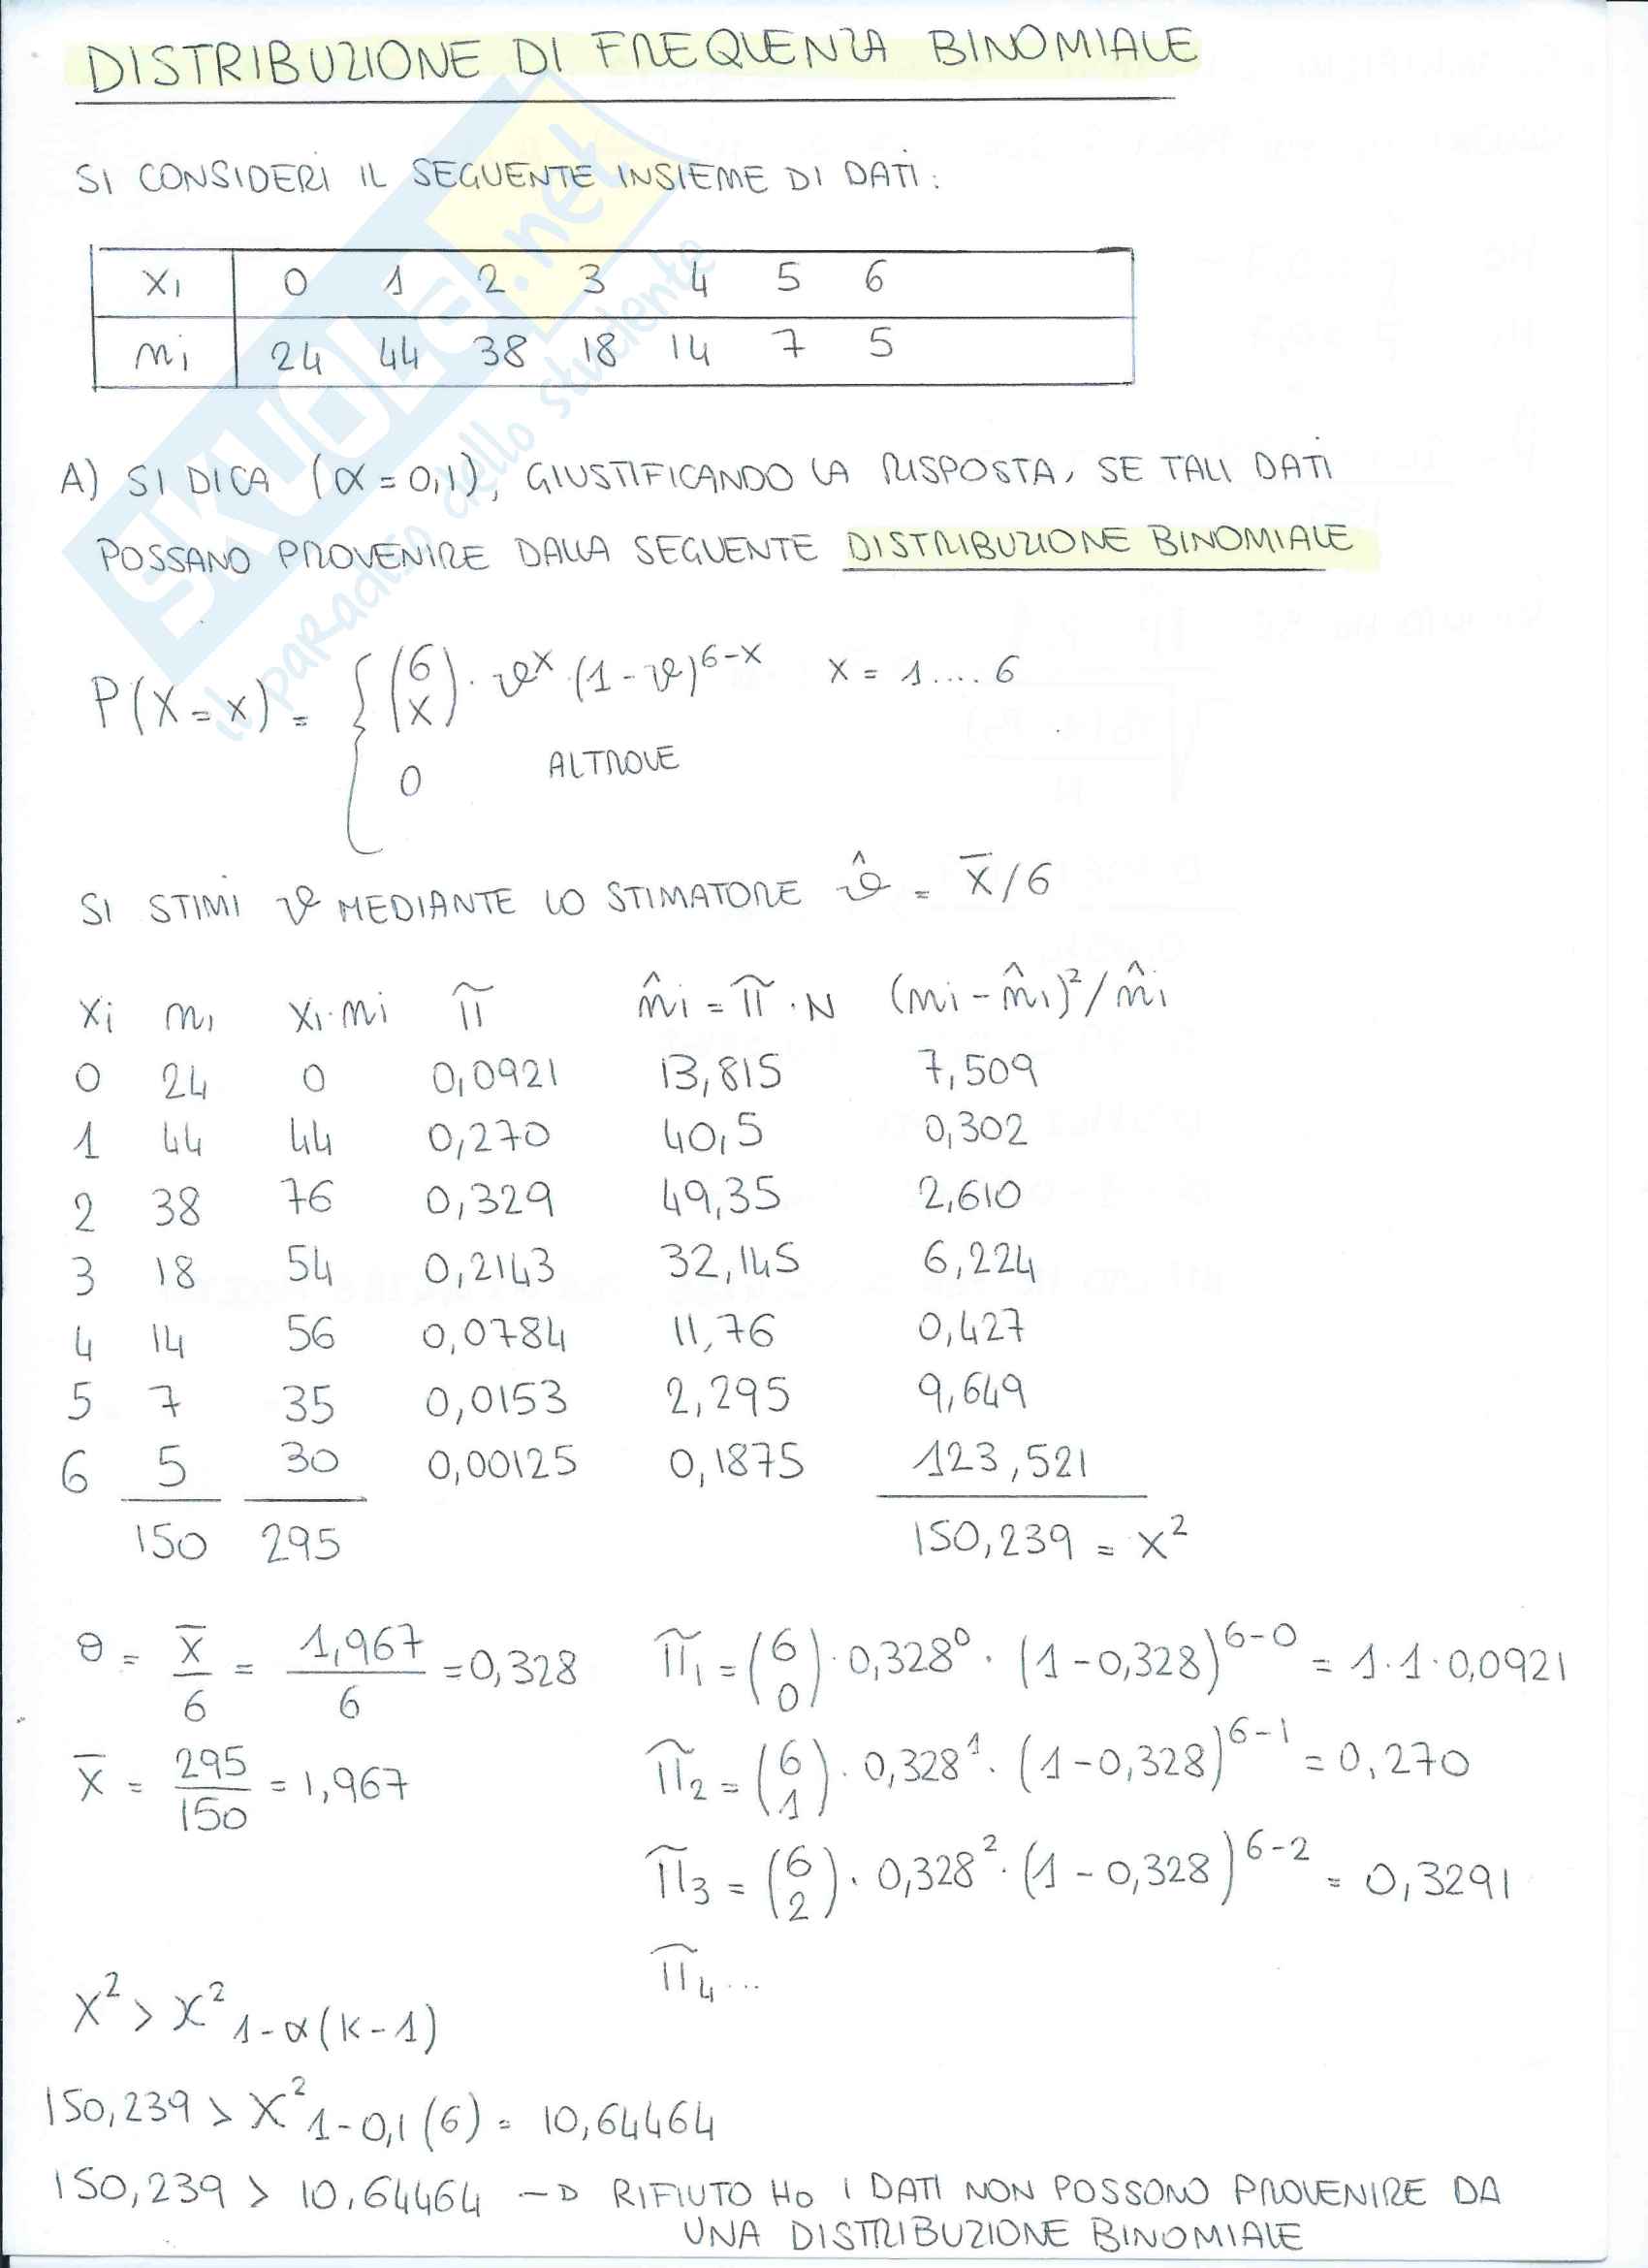 DISTRIBUZIONE DI FREQUENZA BINOMIALE
SI CONSIDERI IL SEGUENTE INSIEME DI DATI:
xi 0 1 2 3 4 5 6
ni 24 44 38 18 14 7 5
A) SI DICA (α = 0,1), GIUSTIFICANDO LA RISPOSTA, SE TALI DATI
POSSANO PROVENIRE DALLA SEGUENTE DISTRIBUZIONE BINOMIALE
P(X = x) = { (6 x) · ϑ^x · (1 - ϑ)^6-x x = 1 .... 6
0 ALTROVE
SI STIMI ϑ MEDIANTE LO STIMATORE ϑ̂ = x̄/6
xi ni xi·ni π̃ n̂i = π̃ · N (ni - n̂i)²/n̂i
0 24 0 0,0921 13,815 7,509
1 44 44 0,270 40,5 0,302
2 38 76 0,329 49,35 2,610
3 18 54 0,2143 32,145 6,224
4 14 56 0,0784 11,76 0,427
5 7 35 0,0153 2,295 9,649
6 5 30 0,00125 0,1875 123,521
150 295 150,239 = x²
θ = x̄/6 = 1,967/6 = 0,328 π̃1 = (6 0) · 0,328^0 · (1 - 0,328)^6-0 = 1·1·0,0921
x̄ = 295/150 = 1,967 π̃2 = (6 1) · 0,328^1 · (1 - 0,328)^6-1 = 0,270
π̃3 = (6 2) · 0,328^2 · (1 - 0,328)^6-2 = 0,3291
π̃4 ...
x² > x² 1-α (K-1)
150,239 > x² 1-0,1 (6) = 10,64464
150,239 > 10,64464 → RIFIUTO H0 I DATI NON POSSONO PROVENIRE DA
UNA DISTRIBUZIONE BINOMIALE
SKUOLA.net
il paradiso dello studente